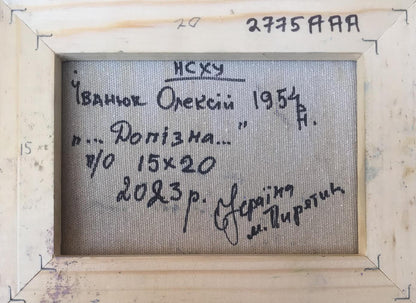 20
2775AAA
НСХУ
Іванюк Олексій 1954 р.н.
„... Допізна..."
п/о 15х20
2023 р.
Україна
м. Пирятин
15